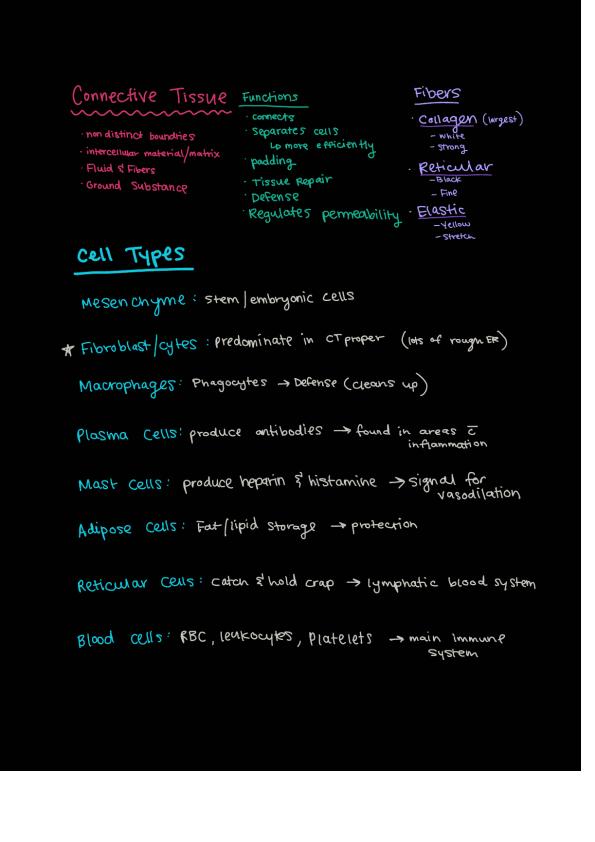 Connective Tissue
· non distinct boundries
· intercellular material/matrix
· Fluid & Fibers
· Ground Substance
Functions
· connects
· Separates cells
↳ more efficiently
· padding
· Tissue Repair
· Defense
· Regulates permeability
Fibers
· Collagen (largest)
- white
- strong
· Reticular
- Black
- Fine
· Elastic
- Yellow
- Stretch
Cell Types
Mesenchyme: stem/embryonic cells
★ Fibroblast/cytes: predominate in CT proper (lots of rough ER)
Macrophages: Phagocytes → Defense (cleans up)
Plasma Cells: produce antibodies → found in areas c̄
inflammation
Mast Cells: produce heparin & histamine → signal for
vasodilation
Adipose Cells: Fat/lipid storage → protection
Reticular Cells: catch & hold crap → lymphatic blood system
Blood cells: RBC, leukocytes, Platelets → main immune
system